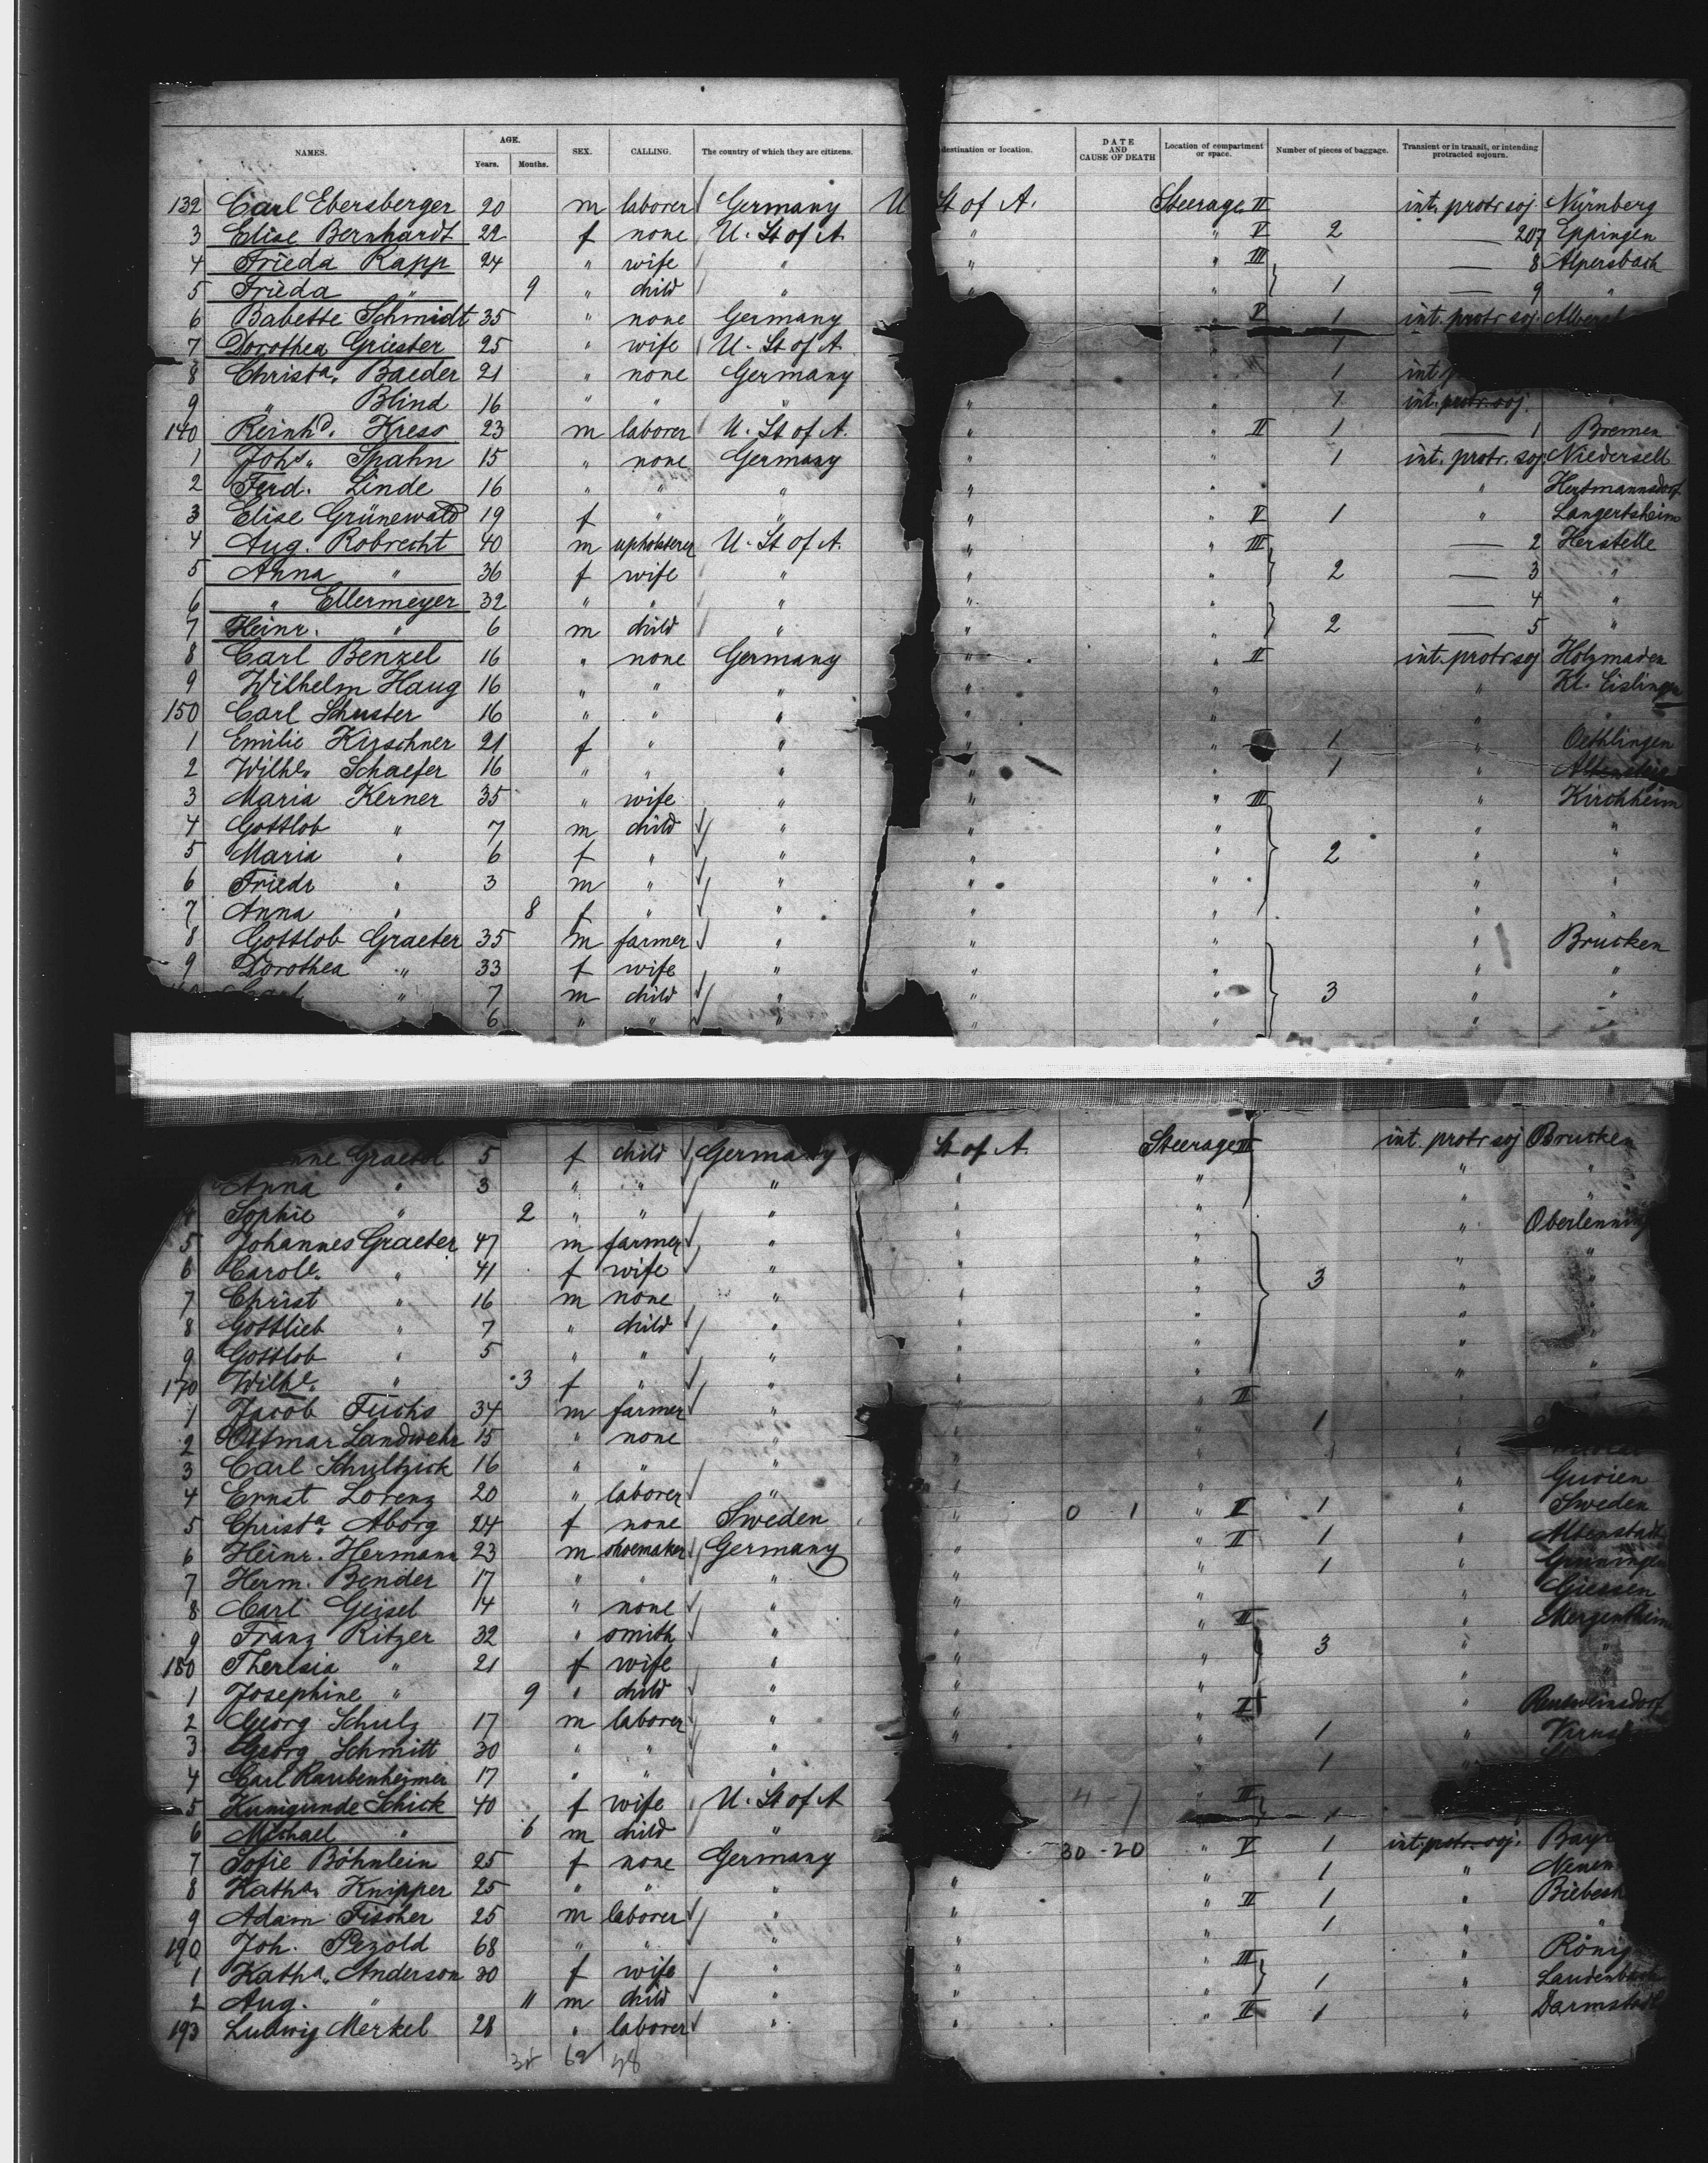 NAMES. AGE. Years. Months. SEX. CALLING. The country of which they are citizens. destination or location. DATE AND CAUSE OF DEATH Location of compartment or space. Number of pieces of baggage. Transient or in transit, or intending protracted sojourn.
132 Carl Ebersberger 20 m laborer Germany U St of A. Steerage II int. protr soj Nürnberg
3 Elise Bernhardt 22 f none U. St of A. " " V 2 — 207 Eppingen
4 Frieda Rapp 24 " wife " " " III — 8 Alpersbach
5 Frieda " 9 " child " " " 1 — 9 "
6 Babette Schmidt 35 " none Germany V 1 int. protr soj.
7 Dorothea Griester 25 " wife U. St of A. 1
8 Christa. Baeder 21 " none Germany " 1 int.
9 " Blind 16 " " " " " 1 int. protr. soj. "
140 Reinhd. Kress 23 m laborer U. St of A. " " II 1 — 1 Bremen
1 Johs. Spahn 15 " none Germany " " 1 int. protr. soj. Niedersell
2 Ferd. Linde 16 " " " " " " Hertmannsdorf
3 Elise Grünewald 19 f " " " " V 1 " Langertsheim
4 Aug. Robrecht 40 m upholsterer U. St of A. " " III — 2 Herstelle
5 Anna " 36 f wife " " " 2 — 3 "
6 " Ellermeyer 32 " " " " " — 4 "
7 Heinr. " 6 m child " " " 2 — 5 "
8 Carl Benzel 16 " none Germany " " II int. protr soj Holzmaden
9 Wilhelm Haug 16 " " " " " " Kl. Eislingen
150 Carl Schuster 16 " " " " " " "
1 Emilie Kirschner 21 f " " " " 1 " Oethlingen
2 Wilhe. Schaefer 16 " " " " " 1 "
3 Maria Kerner 35 " wife " " " III " Kirchheim
4 Gottlob " 7 m child " " " " "
5 Maria " 6 f " " " " 2 " "
6 Friedr " 3 m " " " " " "
7 Anna " 8 f " " " " " "
8 Gottlob Graeter 35 m farmer " " " " Brucken
9 Dorothea " 33 f wife " " " " "
" 7 m child " " " 3 " "
6 " " " " " "
Graeter 5 f child Germany St of A. Steerage III int. protr soj Brucken
Anna " 3 " " " " " " "
4 Sophie " 2 " " " " " " "
5 Johannes Graeter 47 m farmer " " " " Oberlenning
6 Carole. " 41 f wife " " " " "
7 Christ " 16 m none " " " 3 " "
8 Gottlieb " 7 " child " " " " "
9 Gottlob " 5 " " " " " " "
170 Wilhe. " 3 f " " " " " "
1 Jacob Fuchs 34 m farmer " " II "
2 Ottmar Landwehr 15 " none " 1
3 Carl Schultzick 16 " " " "
4 Ernst Lorenz 20 " laborer " " " " Gurien
5 Christa. Aborg 24 f none Sweden 0 1 " V 1 " Sweden
6 Heinr. Hermann 23 m shoemaker Germany " " II 1 " Altenstadt
7 Herm. Bender 17 " " " " " 1 " Grüningen
8 Carl Geisel 14 " none " " " " Giessen
9 Franz Ritzer 32 " smith " " " III " Mergentheim
180 Theresia " 21 f wife " " " 3 " "
1 Josephine " 9 " child " " " " "
2 Georg Schulz 17 m laborer " " " II " Rentweinsdorf
3 Georg Schmitt 30 " " " " 1 "
4 Carl Raubenheimer 17 " " " 1
5 Kunigunde Schick 40 f wife U. St of A 4 - 7 " III
6 Michael " 6 m child " 1
7 Sofie Böhnlein 25 f none Germany 30 - 20 " V 1 int. protr. soj.
8 Katha. Knipper 25 " " " " " 1 "
9 Adam Fischer 25 m laborer " " " II 1 "
190 Joh. Pezold 68 " " " " " 1 " "
1 Katha. Anderson 30 f wife " " " III "
2 Aug. " 11 m child " " 1 " Laudenbach
193 Ludwig Merkel 28 " laborer " " " II 1 " Darmstadt